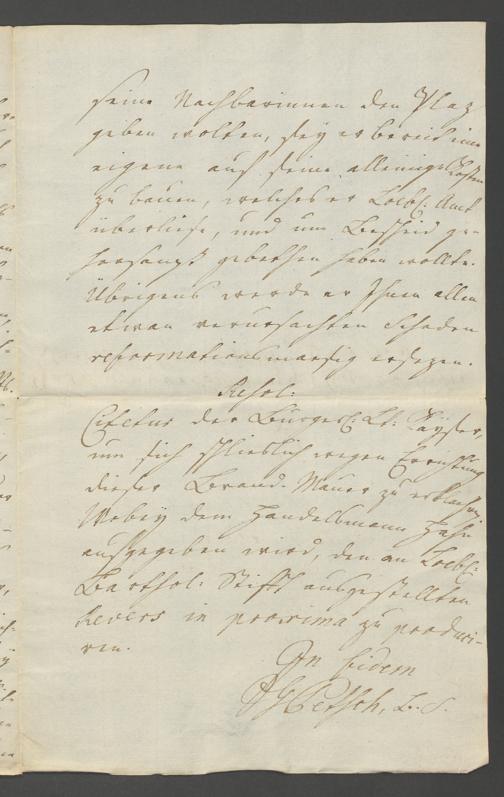 seine Nachbarinnen den Plaz
geben wolten, sey er bereit eine
eigene auf seine alleinige Kosten
zu bauen, welches er Löbl: Amt
überließe, und um Bescheid ge-
horsamst gebethen haben wollte.
Übrigens werde er Ihnen allen
etwan verursachten Schaden
reformationsmaesig ersezen.
Resol:
Citetur der Bürgerl: Lt: Kayser,
um sich schlieslich wegen Errichtung
dieser Brand-Mauer zu erklaehren,
Wobey dem Handelsmann Hahn
aufgegeben wird, den an Loebl:
Barthol: Stifft ausgestellten
Revers in proxima zu produci-
ren.
In fidem
Hetsch, B. S.